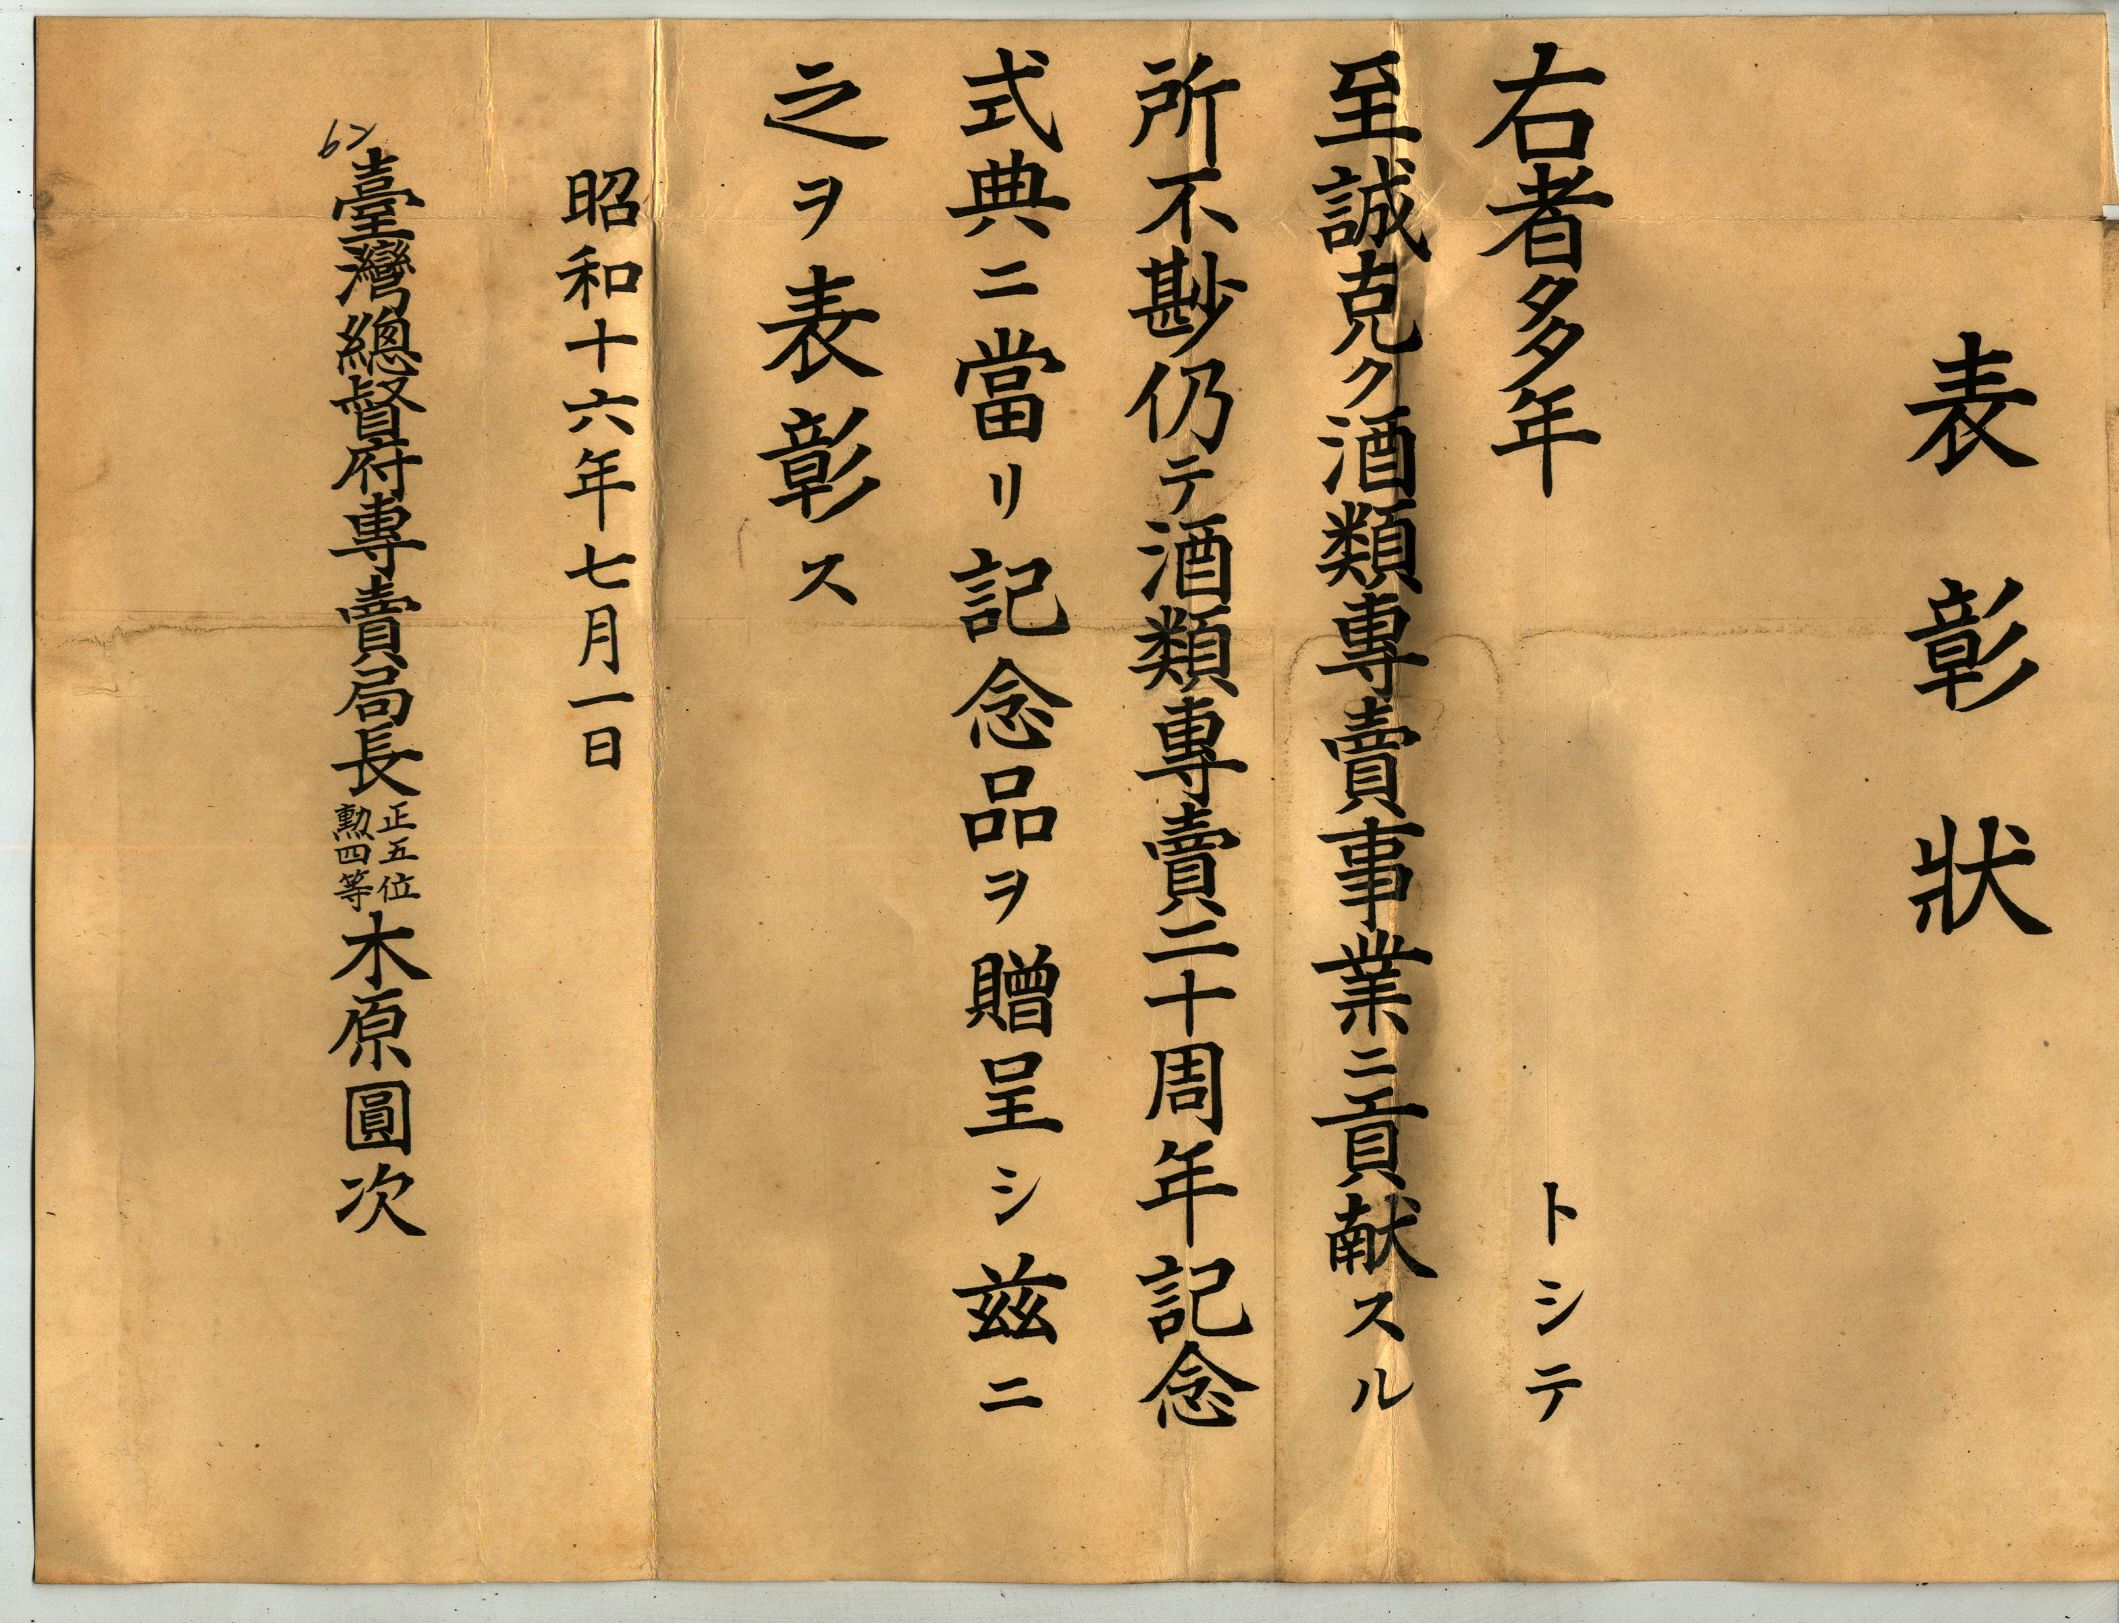 表彰狀
右者多年　　　　　　トシテ
至誠克ク酒類專賣事業ニ貢献スル
所不尠仍テ酒類專賣二十周年記念
式典ニ當リ記念品ヲ贈呈シ茲ニ
之ヲ表彰ス
昭和十六年七月一日
臺灣總督府專賣局長正五位勲四等木原圓次